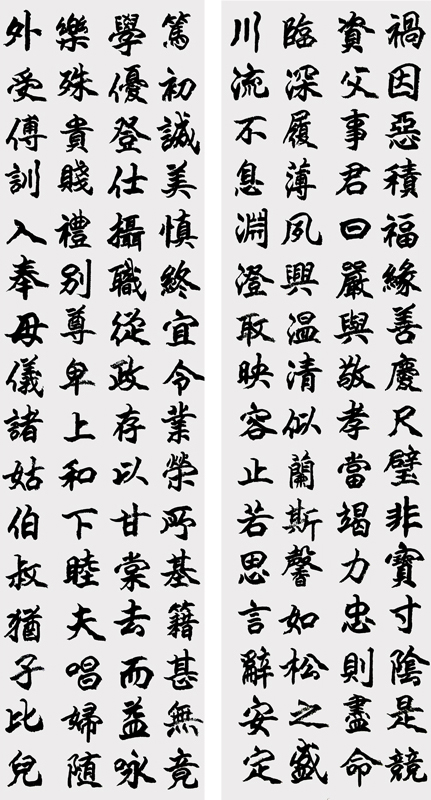 禍因惡積福緣善慶尺璧非寶寸陰是競
資父事君曰嚴與敬孝當竭力忠則盡命
臨深履薄夙興溫凊似蘭斯馨如松之盛
川流不息淵澄取映容止若思言辭安定
篤初誠美慎終宜令業榮所基籍甚無竟
學優登仕攝職從政存以甘棠去而益咏
樂殊貴賤禮別尊卑上和下睦夫唱婦隨
外受傅訓入奉母儀諸姑伯叔猶子比兒